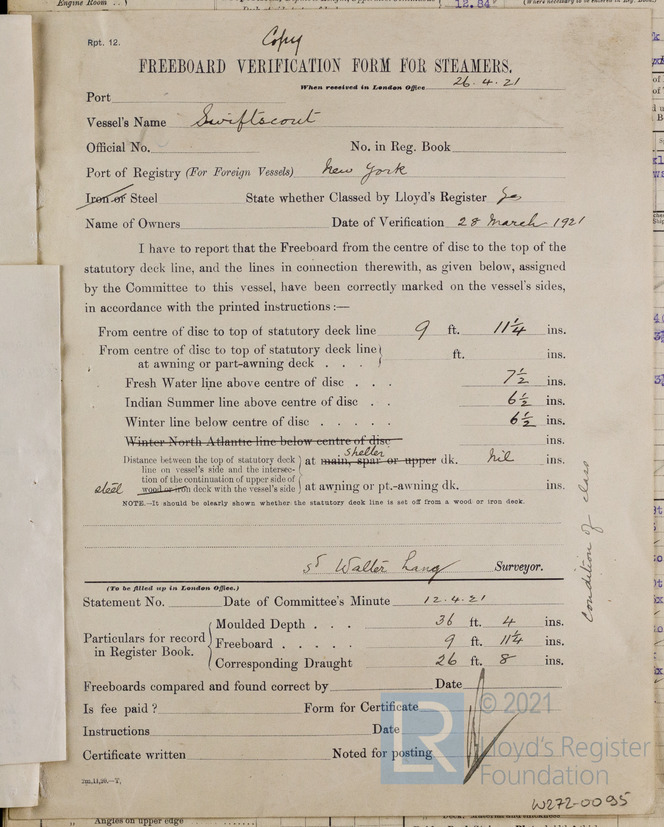 Engine Room
12.84
Copy
Rpt. 12.
FREEBOARD VERIFICATION FORM FOR STEAMERS.
When received in London Office 26.4.21
Port
Vessel's Name Swiftscout
Official No. No. in Reg. Book
Port of Registry (For Foreign Vessels) New York
Iron or Steel State whether Classed by Lloyd's Register Yes
Name of Owners Date of Verification 28 March 1921
I have to report that the Freeboard from the centre of disc to the top of the
statutory deck line, and the lines in connection therewith, as given below, assigned
by the Committee to this vessel, have been correctly marked on the vessel's sides,
in accordance with the printed instructions :—
From centre of disc to top of statutory deck line 9 ft. 11 1/4 ins.
From centre of disc to top of statutory deck line
at awning or part-awning deck . . . ft. ins.
Fresh Water line above centre of disc . . . 7 1/2 ins.
Indian Summer line above centre of disc . . 6 1/2 ins.
Winter line below centre of disc . . . . . 6 1/2 ins.
Winter North Atlantic line below centre of disc ins.
Distance between the top of statutory deck
line on vessel's side and the intersec-
tion of the continuation of upper side of
steel wood or iron deck with the vessel's side
shelter
at main, spar or upper dk. Nil ins.
at awning or pt.-awning dk. ins.
NOTE.—It should be clearly shown whether the statutory deck line is set off from a wood or iron deck.
condition of class
Walter Lang Surveyor.
(To be filled up in London Office.)
Statement No. Date of Committee's Minute 12.4.21
Particulars for record
in Register Book.
Moulded Depth . . . 36 ft. 4 ins.
Freeboard . . . . . 9 ft. 11 1/4 ins.
Corresponding Draught 26 ft. 8 ins.
Freeboards compared and found correct by Date
Is fee paid ? Form for Certificate
Instructions Date
Certificate written Noted for posting
LR
© 2021
Lloyd's Register
Foundation
W272-0095
Angles on upper edge